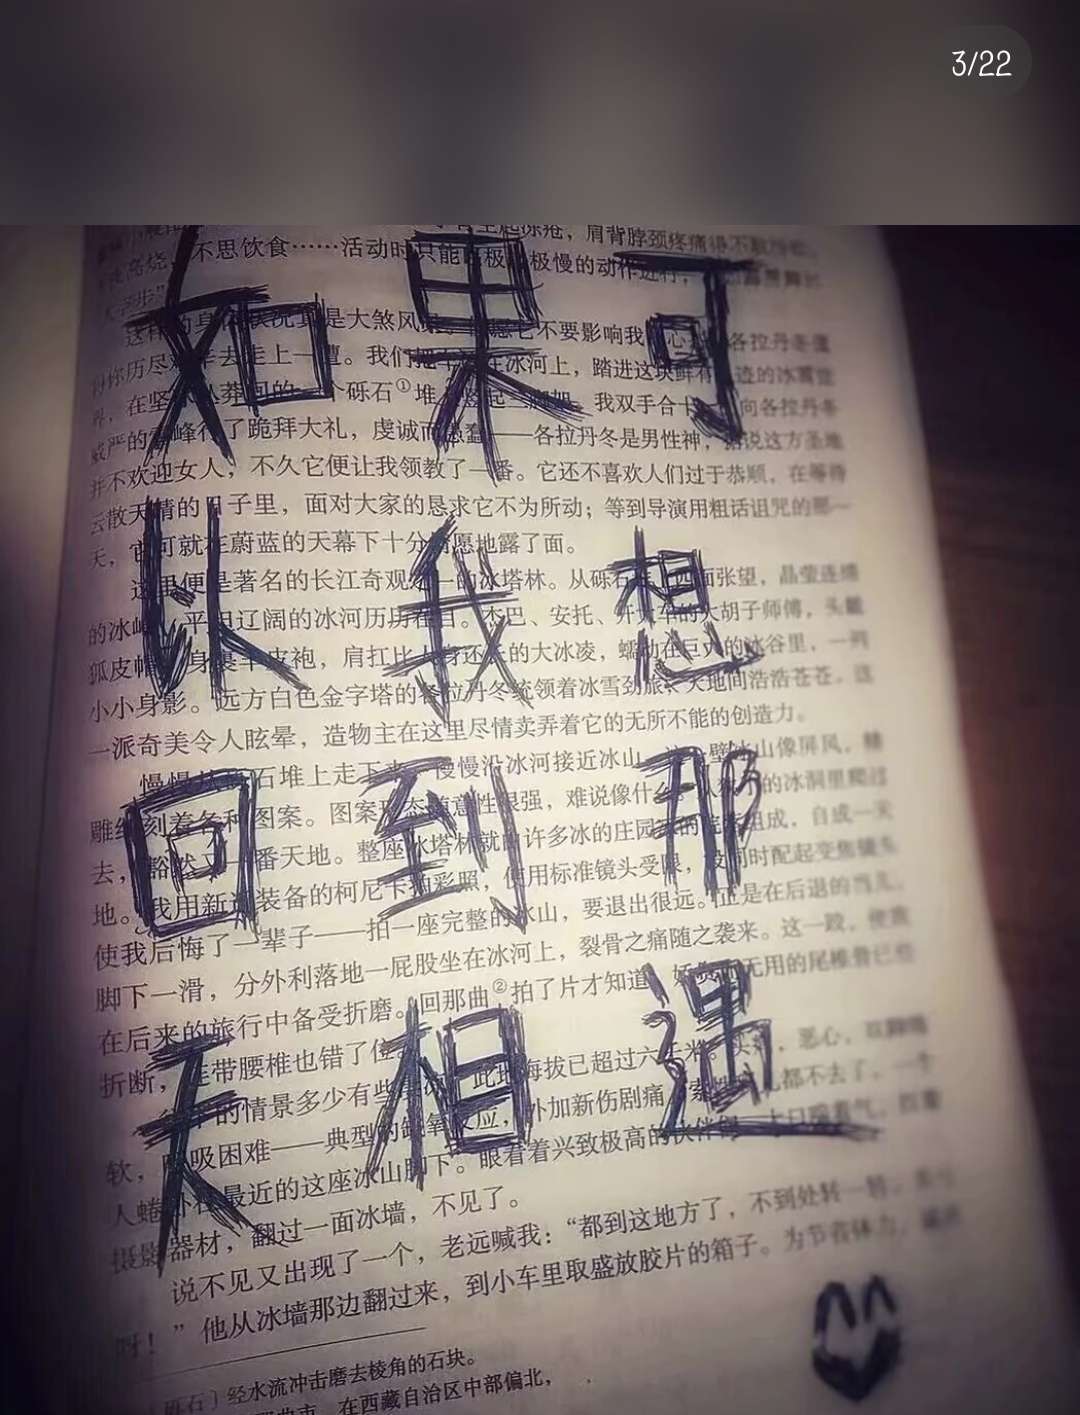 3/22
如果可
以我想
回到那
天相遇
肩背脖颈疼痛得不敢
高烧、不思饮食……活动时只能 极 极慢的动作进行，
这样的身体状况真是大煞风 不要影响我 各拉丹冬
你历尽 去走上一遭。我们把车 在冰河上，踏进这块鲜有 迹的冰雪世
界，在坚 莽 的一个砾石①堆 起三脚架。我双手合十， 向各拉丹冬
威严的雪峰行了跪拜大礼，虔诚而愚蠢——各拉丹冬是男性神，据说这方圣地
并不欢迎女人，不久它便让我领教了一番。它还不喜欢人们过于恭顺，在等待
云散天晴的日子里，面对大家的恳求它不为所动；等到导演用粗话诅咒的那一
天，它可就在蔚蓝的天幕下十分情愿地露了面。
这里便是著名的长江奇观之一的冰塔林。从砾石 四面张望，晶莹连绵
的冰峰、平坦辽阔的冰河历历在目。杰巴、安托、开大车的大胡子师傅，头戴
狐皮帽 身裹羊皮袍，肩扛比人身还长的大冰凌，蠕动在巨大的冰谷里，一列
小小身影。远方白色金字塔的各拉丹冬统领着冰雪劲旅，天地间浩浩苍苍。这
一派奇美令人眩晕，造物主在这里尽情卖弄着它的无所不能的创造力。
慢慢从 石堆上走下来，慢慢沿冰河接近冰山。 一壁冰山像屏风，精
雕细刻着各种图案。图案形态随意性很强，难说像什么。从 的冰洞里爬过
去，豁然又一番天地。整座冰塔林就由许多冰的庄园 组成，自成一天
地。我用新近装备的柯尼卡拍彩照，使用标准镜头受限，没同时配起变焦镜头
使我后悔了一辈子——拍一座完整的冰山，要退出很远。正是在后退的当儿，
脚下一滑，分外利落地一屁股坐在冰河上，裂骨之痛随之袭来。这一跤，使我
在后来的旅行中备受折磨。回那曲②拍了片才知道， 无用的尾椎骨已经
折断，连带腰椎也错了位。
的情景多少有些 此地海拔已超过六千米。 、恶心、双脚绵
软，呼吸困难——典型的缺氧反应，外加新伤剧痛，索性 都不去了，一个
人蜷卧在最近的这座冰山脚下。眼看着兴致极高的伙伴们 大口喘着气，扛着
摄影器材，翻过一面冰墙，不见了。
说不见又出现了一个，老远喊我：“都到这地方了，不到处转一转，多亏
呀！”他从冰墙那边翻过来，到小车里取盛放胶片的箱子。为节省体力，
〔砾石〕经水流冲击磨去棱角的石块。
在西藏自治区中部偏北，